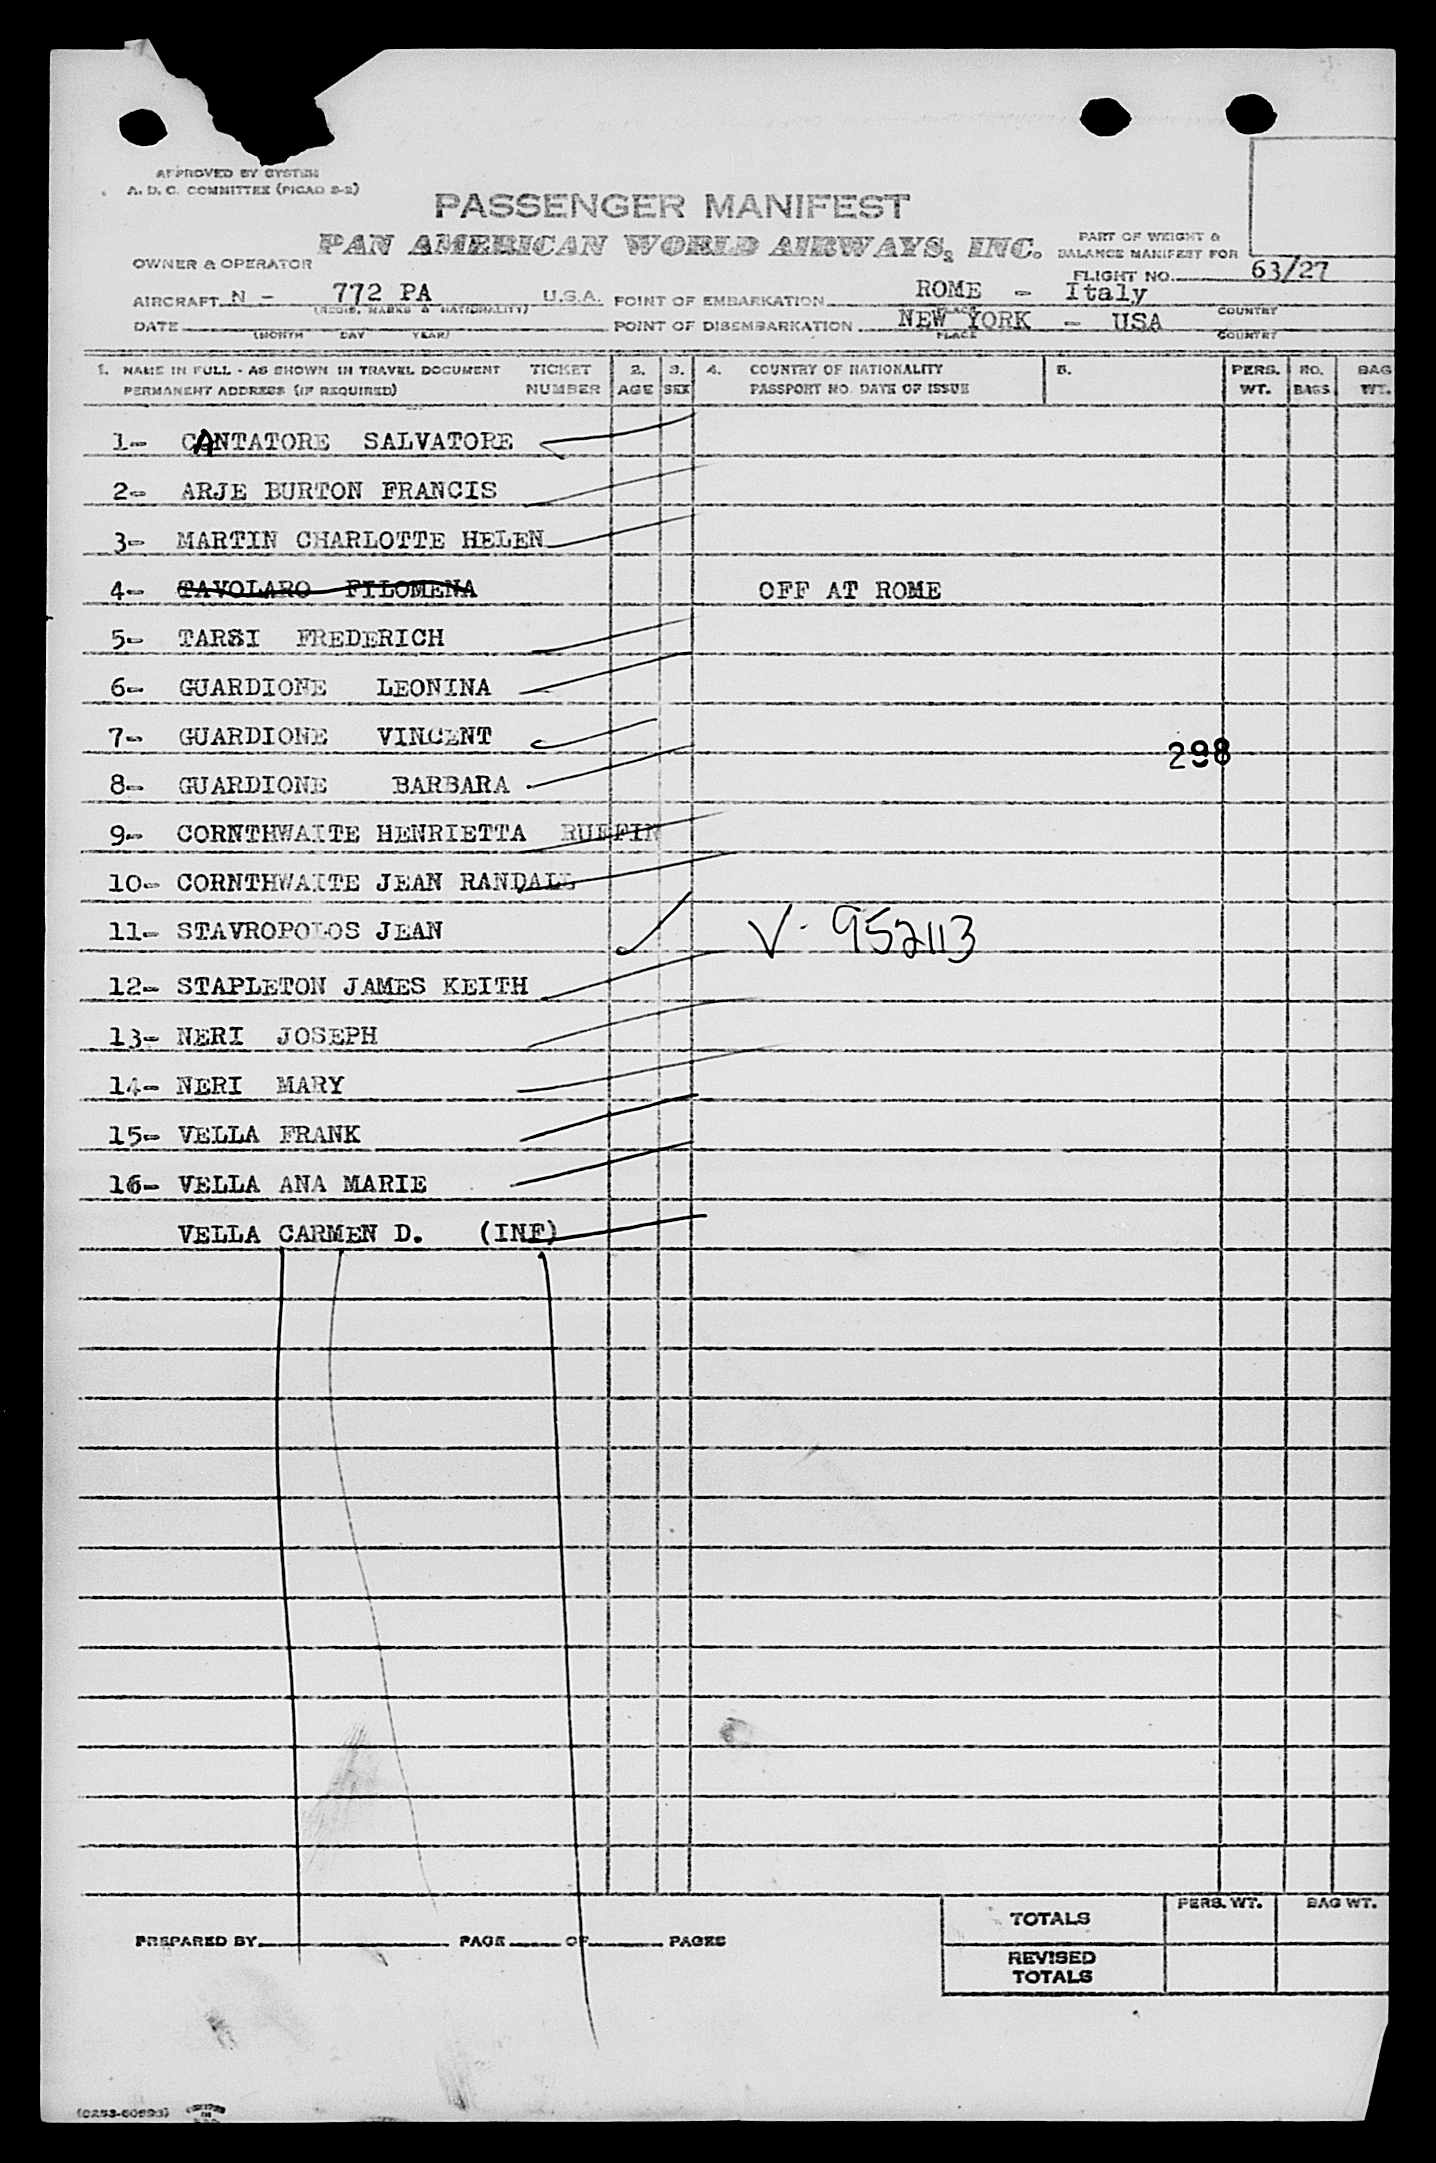 APPROVED BY SYSTEM
A. D. C. COMMITTEE (PICAO 2-2)
PASSENGER MANIFEST
PAN AMERICAN WORLD AIRWAYS, INC.
PART OF WEIGHT &
BALANCE MANIFEST FOR
OWNER & OPERATOR
FLIGHT NO. 63/27
AIRCRAFT N - 772 PA U.S.A. POINT OF EMBARKATION ROME - Italy
(REGIS. MARKS & NATIONALITY) PLACE COUNTRY
DATE POINT OF DISEMBARKATION NEW YORK - USA
(MONTH DAY YEAR) PLACE COUNTRY
1. NAME IN FULL - AS SHOWN IN TRAVEL DOCUMENT TICKET 2. 3. 4. COUNTRY OF NATIONALITY 5. PERS. NO. BAG
PERMANENT ADDRESS (IF REQUIRED) NUMBER AGE SEX PASSPORT NO. DATE OF ISSUE WT. BAGS WT.
1- CANTATORE SALVATORE
2- ARJE BURTON FRANCIS
3- MARTIN CHARLOTTE HELEN
4- TAVOLARO FILOMENA OFF AT ROME
5- TARSI FREDERICH
6- GUARDIONE LEONINA
7- GUARDIONE VINCENT
298
8- GUARDIONE BARBARA
9- CORNTHWAITE HENRIETTA RUFFIN
10- CORNTHWAITE JEAN RANDALL
11- STAVROPOLOS JEAN V- 952113
12- STAPLETON JAMES KEITH
13- NERI JOSEPH
14- NERI MARY
15- VELLA FRANK
16- VELLA ANA MARIE
VELLA CARMEN D. (INF)
PERS. WT. BAG WT.
TOTALS
PREPARED BY PAGE OF PAGES
REVISED
TOTALS